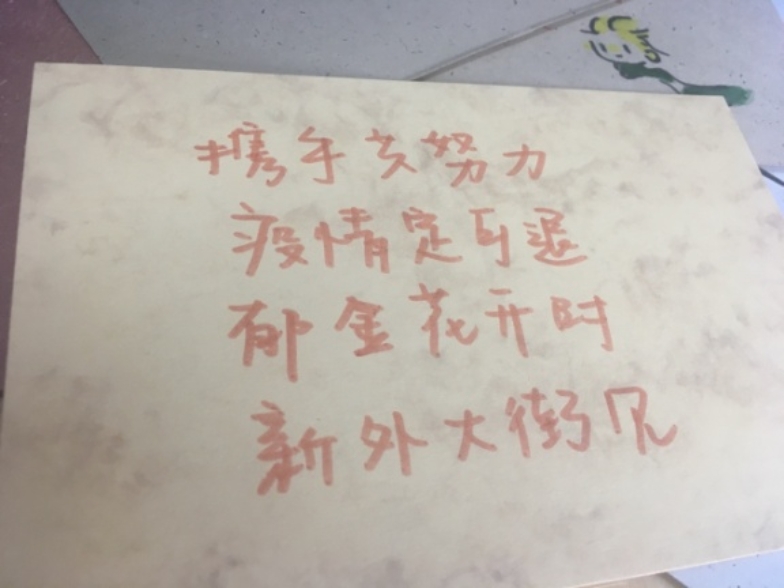 携手共努力
疫情定可退
郁金花开时
新外大街见